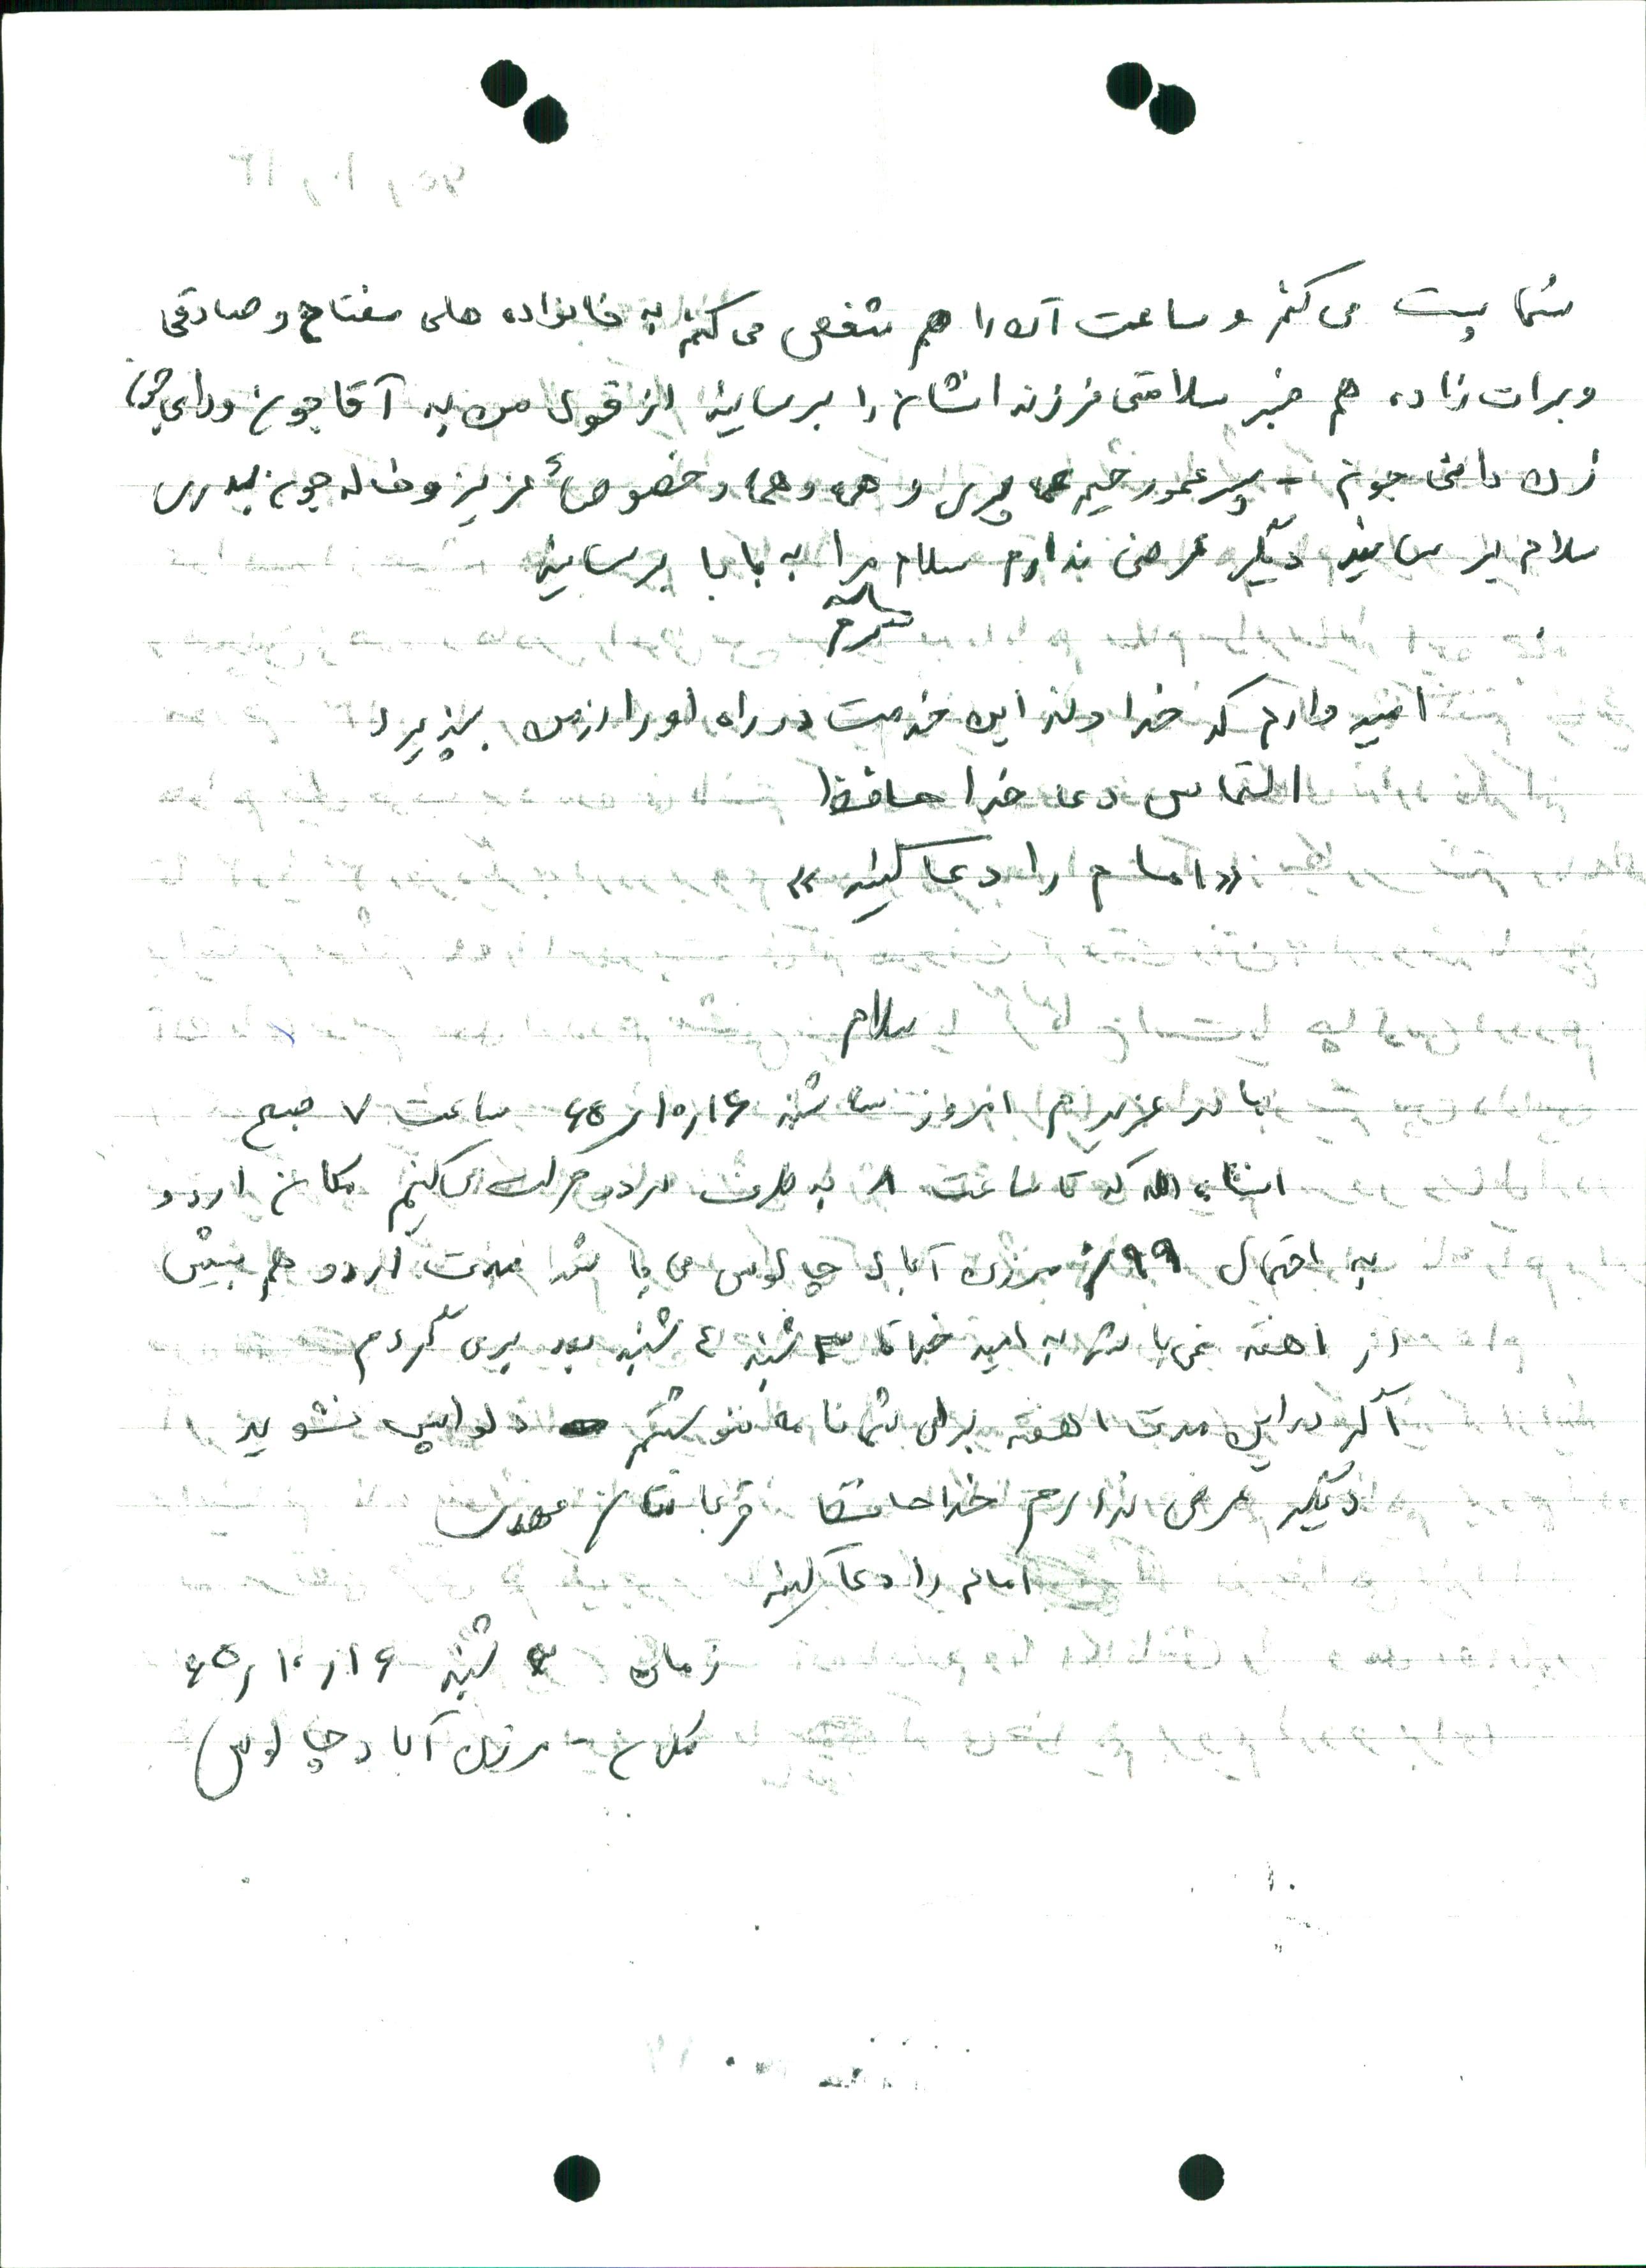 شما پست می کنم و ساعت آن را هم مشخص می کنم به خانواده های مفتاح و صادقی
و برات زاده هم خبر سلامتی فرزندانشان را برسانید از قول من به آقاجون و دایی
زن دائی جون - پسرعمو و همه و خصوصاً عزیز و خاله جون
سلام برسانید دیگر عرضی ندارم سلام مرا به بابا برسانید
امیدوارم که خداوند این خدمت در راه او را از من بپذیرد
التماس دعا خداحافظ
«امام را دعا کنید»
سلام
مادر عزیزم امروز سه شنبه ۶۵/۱۰/۱۶ ساعت ۷ صبح
انشاءالله که تا ساعت ۸ به طرف اردو حرکت می کنیم مکان اردو
به احتمال ۹۹٪ مرزن آباد چالوس می باشد مدت اردو هم بیش
از ۱ هفته نمی باشد به امید خدا تا ۳ شنبه ۴ شنبه بعد برمی گردم
اگر در این مدت ۱ هفته برای شما نامه ننوشتم دلواپس نشوید
دیگر عرضی ندارم خداحافظ قربانتان
امام را دعا کنید
زمان ۳ شنبه ۶۵/۱۰/۱۶
مکان - مرزن آباد چالوس